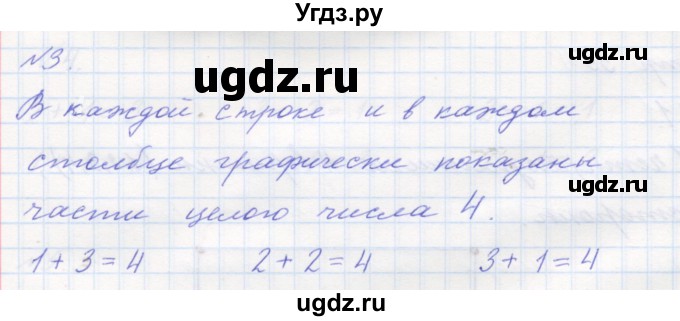 Угдз.ру
№3.
ugdz.ru
В каждой строке и в каждом
столбце графически показаны
ugdz.ru
части целого числа 4.
1+3=4 2+2=4 3+1=4
ugdz.ru